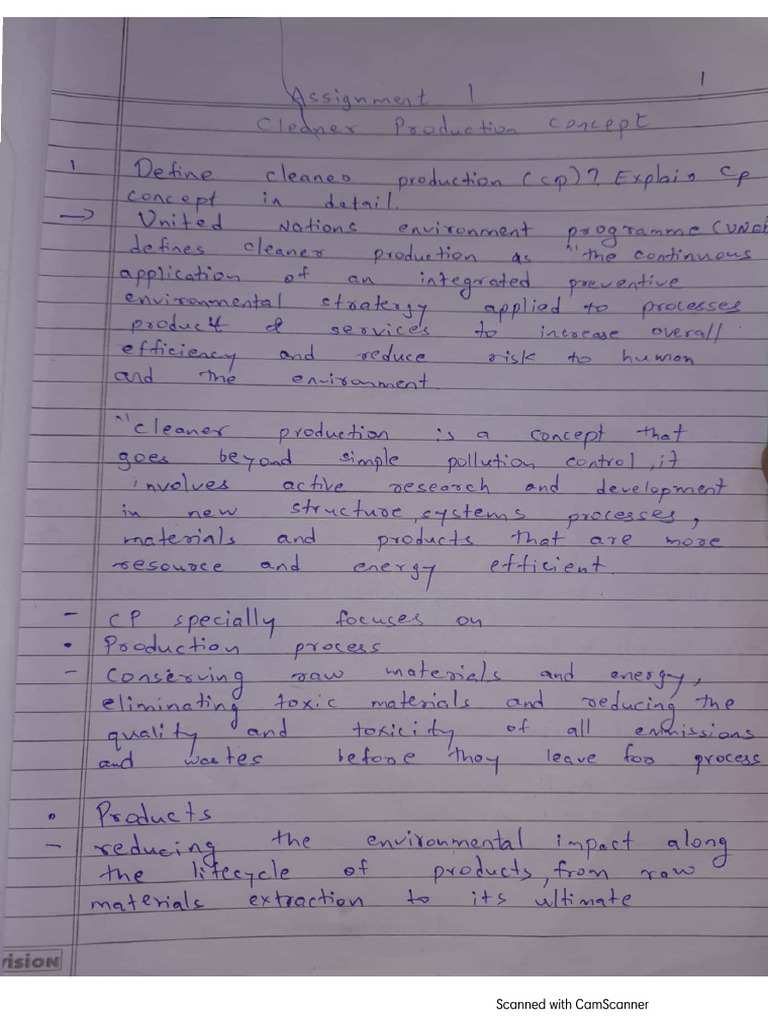 1
Assignment 1
Cleaner Production Concept
1 Define cleaner production (CP)? Explain CP
concept in detail.
→ United Nations environment programme (UNEP
defines cleaner production as "the continuous
application of an integrated preventive
environmental stratergy applied to processes
product & services to increase overall
efficiency and reduce risk to human
and the environment.
"cleaner production is a concept that
goes beyond simple pollution control, it
involves active research and development
in new structure, systems processes,
materials and products that are more
resource and energy efficient.
- CP specially focuses on
• Production process
- Conserving raw materials and energy,
eliminating toxic materials and reducing the
quality and toxicity of all emmissions
and wastes before they leave foo process
• Products
- reducing the environmental impact along
the lifecycle of products, from raw
materials extraction to its ultimate
vision
Scanned with CamScanner